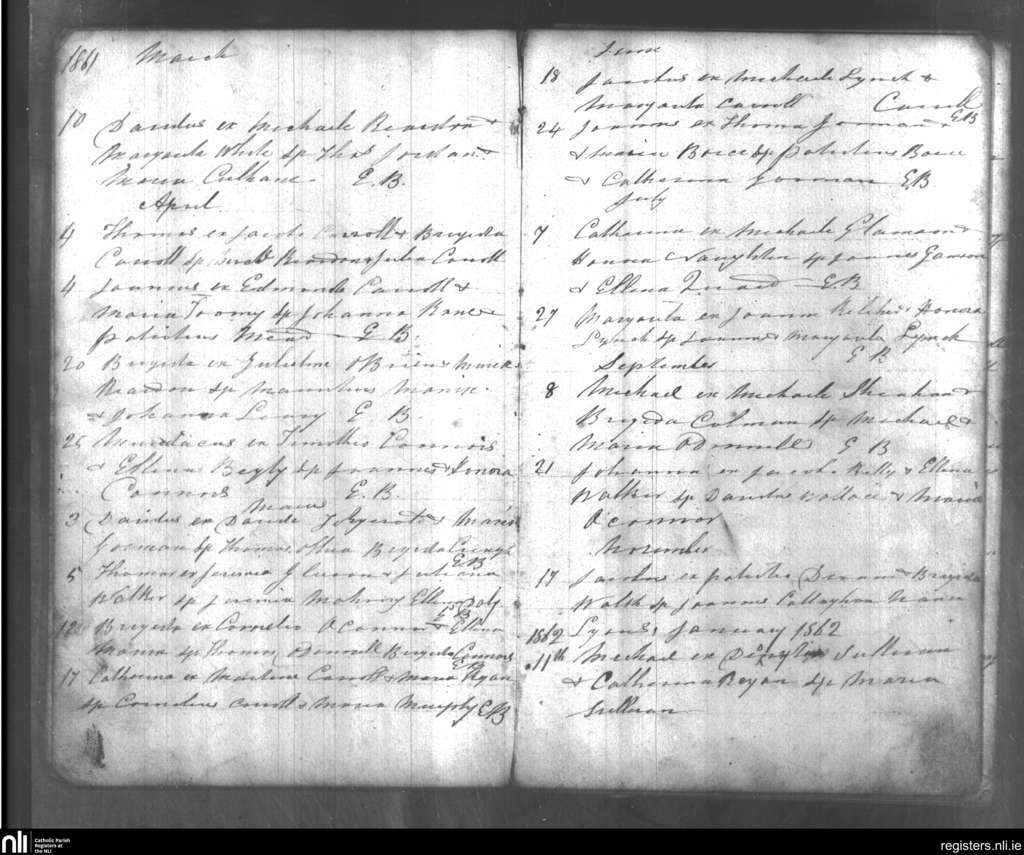 1861 March
10 Davidus ex Michaele Reardon &
Margarita White sp Thos Jordan &
Maria Culhane. E. B.
April
4 Thomas ex Jacobo Carroll & Brigida
Carroll sp Reardon & Julia Carroll
4 Joannes ex Edmundo Carroll &
Maria Toomy sp Johanna Kane &
Patritius Mead E B.
20 Brigida ex Gulielmo OBrien & Maria
Reardon sp Mauritius
& Johanna Leary E. B.
25 ex Timotheo Connors
& Ellena Begly sp Joannes & Honora
Connors E. B.
3 Davidus ex Davide & Maria
Gorman sp Thomas Brigida
E B
5 Thomas ex Jeremia & Juliana
Walker sp Jeremia Mahony Ellena Daly
E B
12 Brigida ex Cornelio OConnor & Ellena
sp Thomas Brigida Connors
E B
17 Catherina ex Carroll & Maria Ryan
sp Cornelius Carroll & Maria Murphy E B
June
18 Jacobus ex Michaele Lynch &
Margarita Carroll Carroll
E B
24 Joannes ex Thoma Gorman &
& Maria Boice sp Patritius Boice
& Catherina Gorman E B
July
7 Catherina ex Michaele &
Honora Naughten sp Joannes
& Ellena E B
27 Margarita ex Joanne & Honora
Lynch sp Joannes & Margarita Lynch
E B
September
8 Michael ex Michaele Sheehan &
Brigida Colman sp Michael &
Maria ODonnell E B
21 Johanna ex Jacobo Kelly & Ellena
Walker sp Davidus Wallace & Maria
O'Connor
November
17 Jacobus ex Patritio & Brigida
Walsh sp Joannes Callaghan
1862 Lyons, January 1862
11th Michael ex Sullivan
& Catherina Regan sp Maria
Sullivan
nli Catholic Parish
Registers at
the NLI
registers.nli.ie